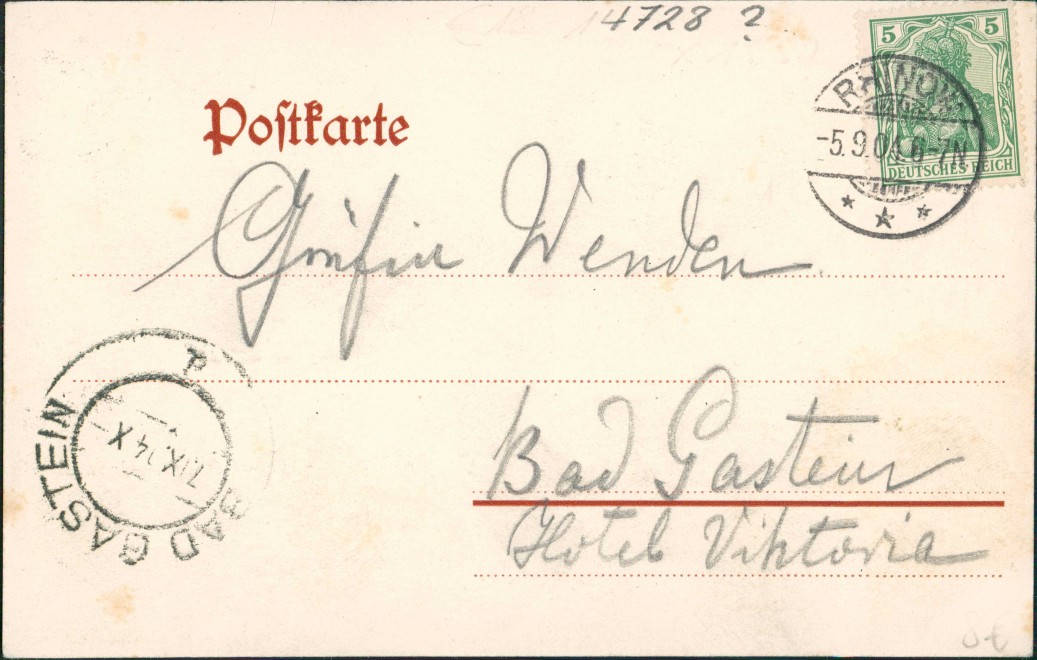 4728 ?
5 5
DEUTSCHES REICH
-5.9.04. 6-7N
Postkarte
Gräfin Wenden
Bad Gastein
Hotel Viktoria
BAD GASTEIN